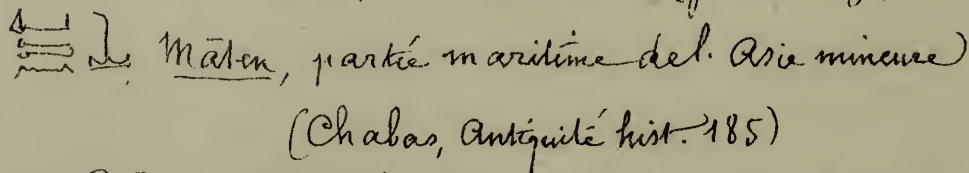 Māten, partie maritime de l. Asie mineure)
(Chabas, Antiquité hist. 185)